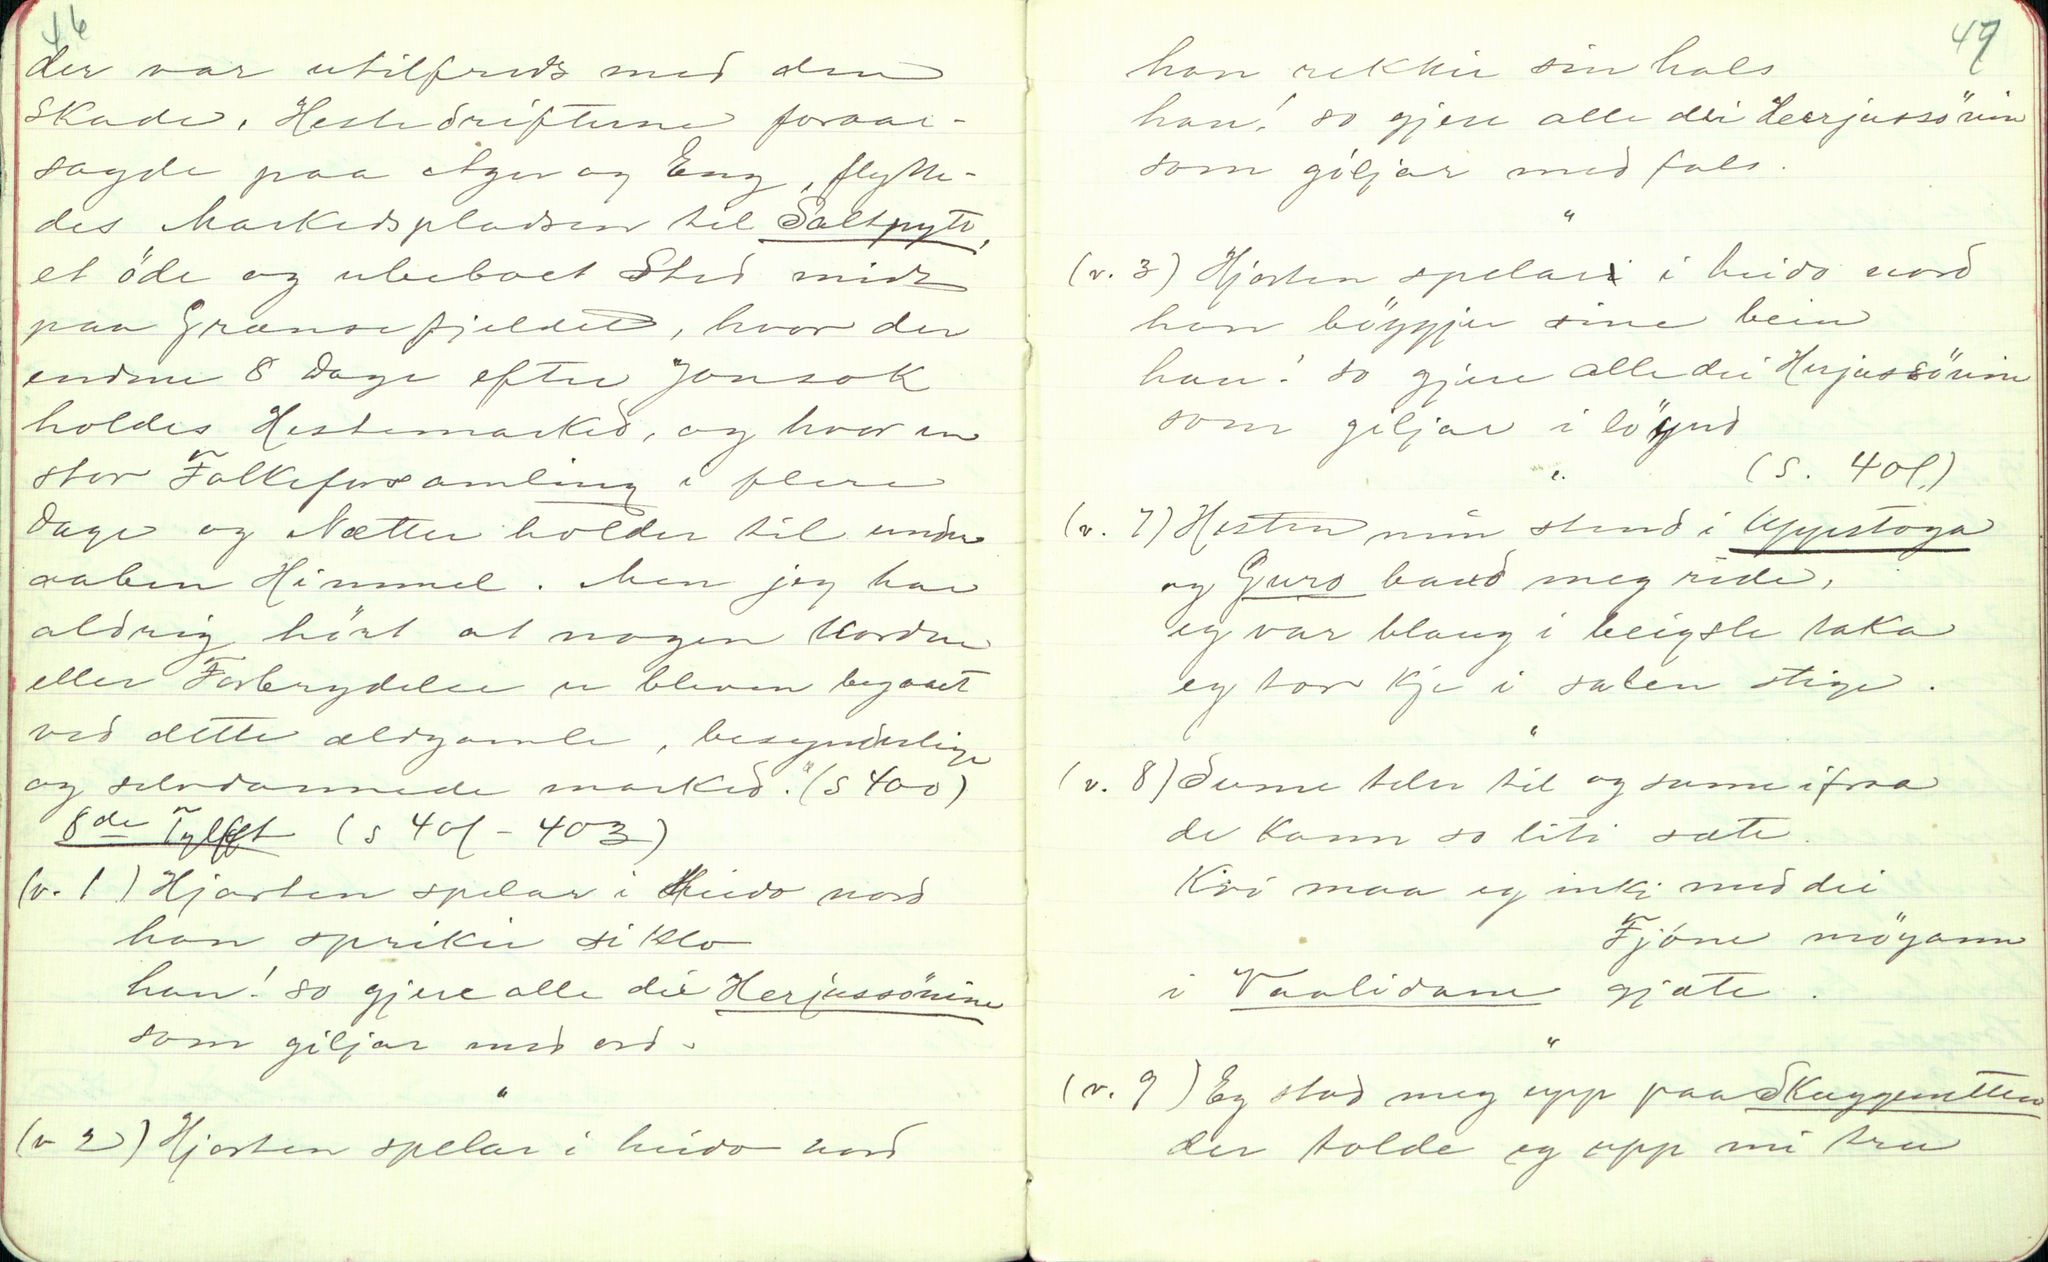 46
der var utilfreds med den
Skade, Hestedrifterne foraar-
sagde paa Ager og Eng, flytte-
des Markedspladsen til Saltpytt,
et öde og ubeboet Sted midt
paa Grænsefjeldet, hvor der
endnu 8 Dage efter Jonsok
holdes Hestemarked, og hvor en
stor Folkeforsamling i flere
Dage og Nætter holder til under
aaben Himmel. Men jeg har
aldrig hört at nogen Uorden
eller Forbrydelse er bleven begaaet
ved dette ældgamle, besynderlige
og selvdannede marked." (s 400)
8de Tylft (s 401 - 403)
(v. 1) Hjorten spelar i Heido nord
han sprikir si klo
han! so gjere alle dei Herjussönine
som giljar med ord.
"
(v 2) Hjorten spelar i heido nord
47
han rekkir sin hals
han! so gjere alle dei Herjussönine
som giljar med fals.
"
(v. 3) Hjorten spelar i heido nord
han böygjer sine bein
han! so gjere alle dei Herjussönine
som giljar i löynd
" (s. 401)
(v. 7) Hesten min stend i Uppistoga
og Guro baud meg ride,
eg var blaug i beigsle taka
eg tor kje i salen stige.
"
(v. 8) Sume teler til og sume ifraa
de kann so liti sæte.
Kvi maa eg inkj med dei
Fjóne möyann
i Vaalidane gjæte.
"
(v. 9) Eg stod meg upp paa Skuggenatten
der tolde eg upp mi tru